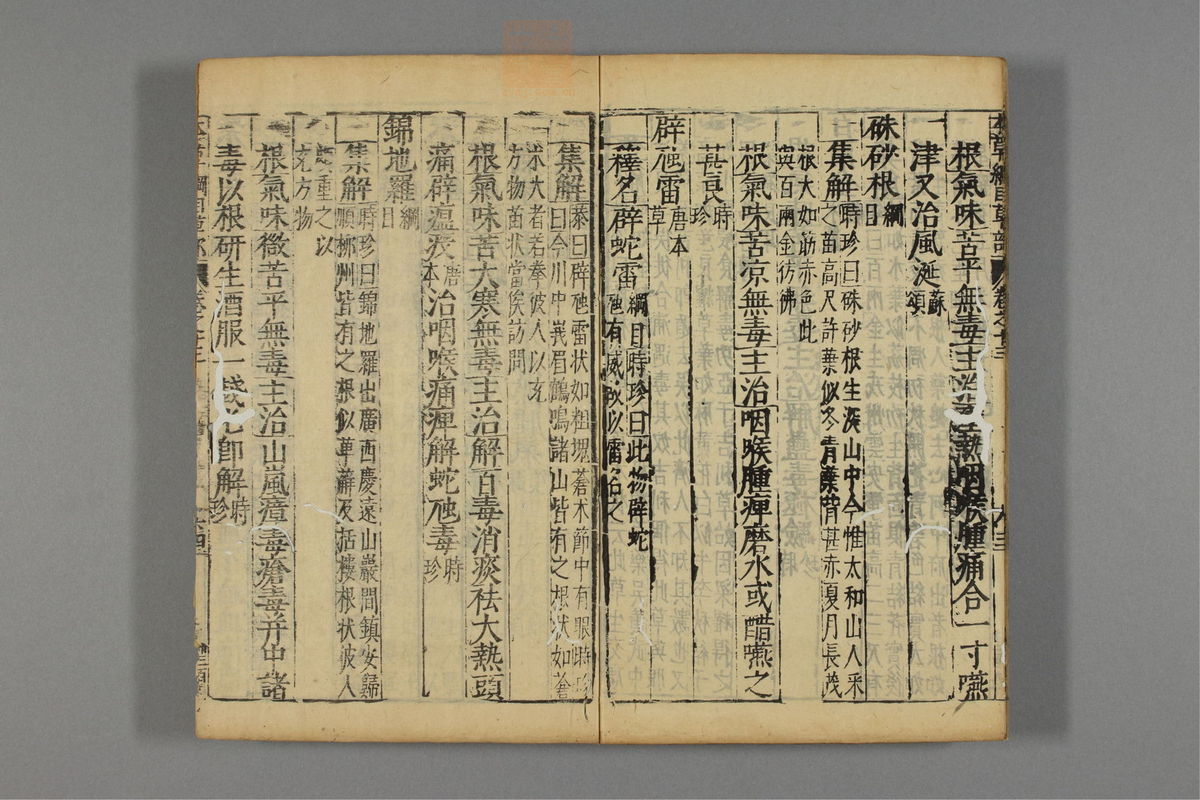 根氣味苦平無毒主治熱咽喉腫痛合一寸嚥
津又治風涎蘇頌
硃砂根綱目
集解時珍曰硃砂根生深山中今惟太和山人采
之苗高尺許葉似冬青葉背甚赤夏月長茂
根大如筯赤色此
與百兩金彷彿
根氣味苦凉無毒主治咽喉腫痺磨水或醋嚥之
甚良時珍
辟虺雷唐本草
釋名辟蛇雷綱目時珍曰此物辟蛇
虺有威故以雷名之
集解恭曰辟虺雷状如粗塊蒼术節中有眼時珍
曰今川中峩眉鶴鳴諸山皆有之根状如蒼
术大者若拳彼人以充
方物苗状當俟訪問
根氣味苦大寒無毒主治解百毒消痰祛大熱頭
痛辟瘟疫唐本治咽喉痛痺解蛇虺毒時珍
錦地羅綱目
集解時珍曰錦地羅出廣西慶遠山巖間鎮安歸
順柳州皆有之根似萆薢及括樓根状彼人
重之以
充方物
根氣味微苦平無毒主治山嵐瘴毒瘡毒并中諸
毒以根研生酒服一錢匕即解時珍